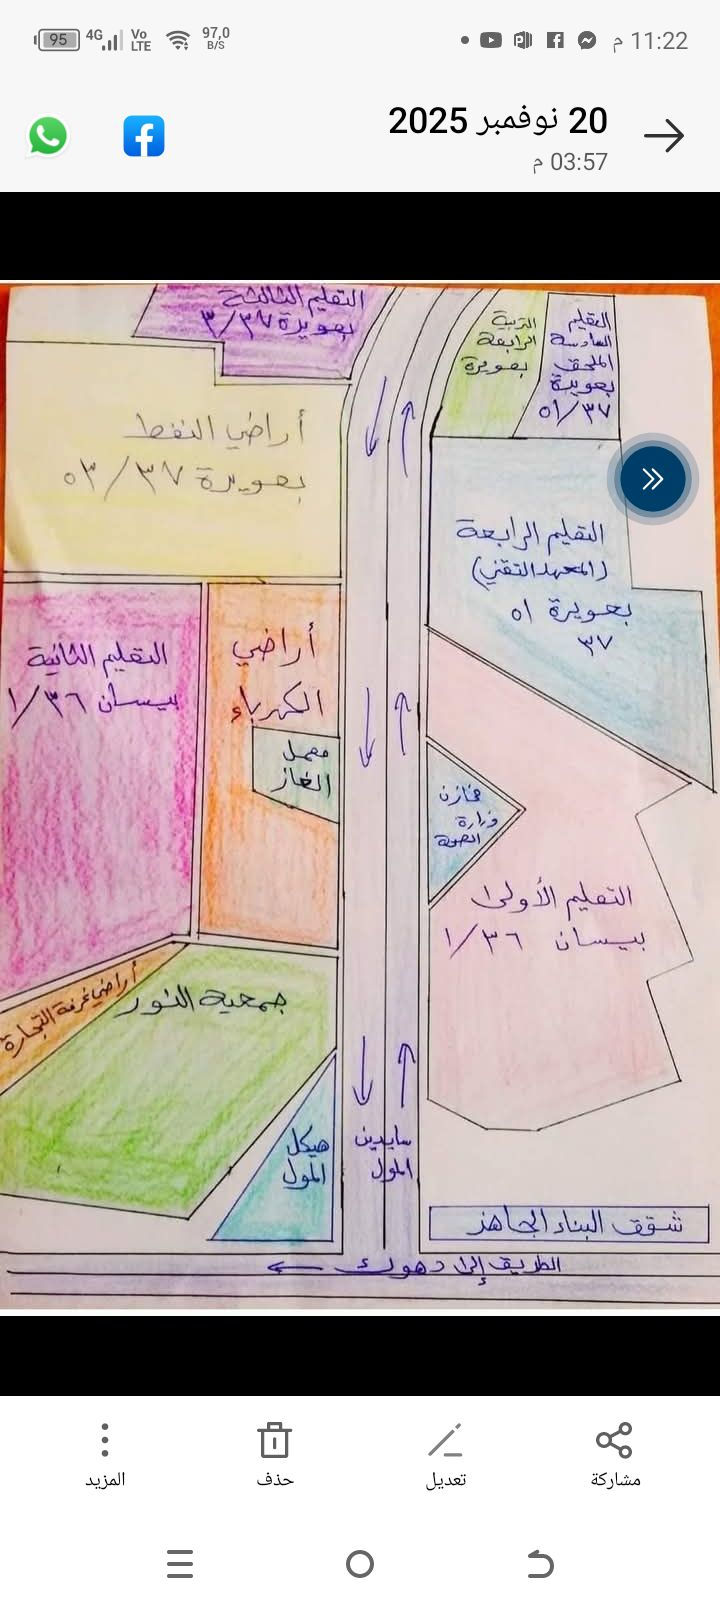 11:22 م
97,0
B/S
Vo
LTE
4G
95
20 نوفمبر 2025
03:57 م
التعليم الثالثة
بعويزة ٣/٣٧
التربية
الرابعة
بعويزة
التعليم
السادسة
الملحق
بعويزة
٥١/٣٧
أراضي النفط
بعويزة ٥٣/٣٧
التعليم الرابعة
(المعهد التقني)
بعويزة ٥١
٣٧
التعليم الثانية
بيسان ١/٣٦
أراضي
الكهرباء
معمل
الغاز
مخازن
وزارة
الصحة
التعليم الأولى
بيسان ١/٣٦
أراضي غرفة التجارة
جمعية النور
هيكل
المول
سايدين
المول
شقق البناء الجاهز
الطريق إلى دهوك
مشاركة
تعديل
حذف
المزيد